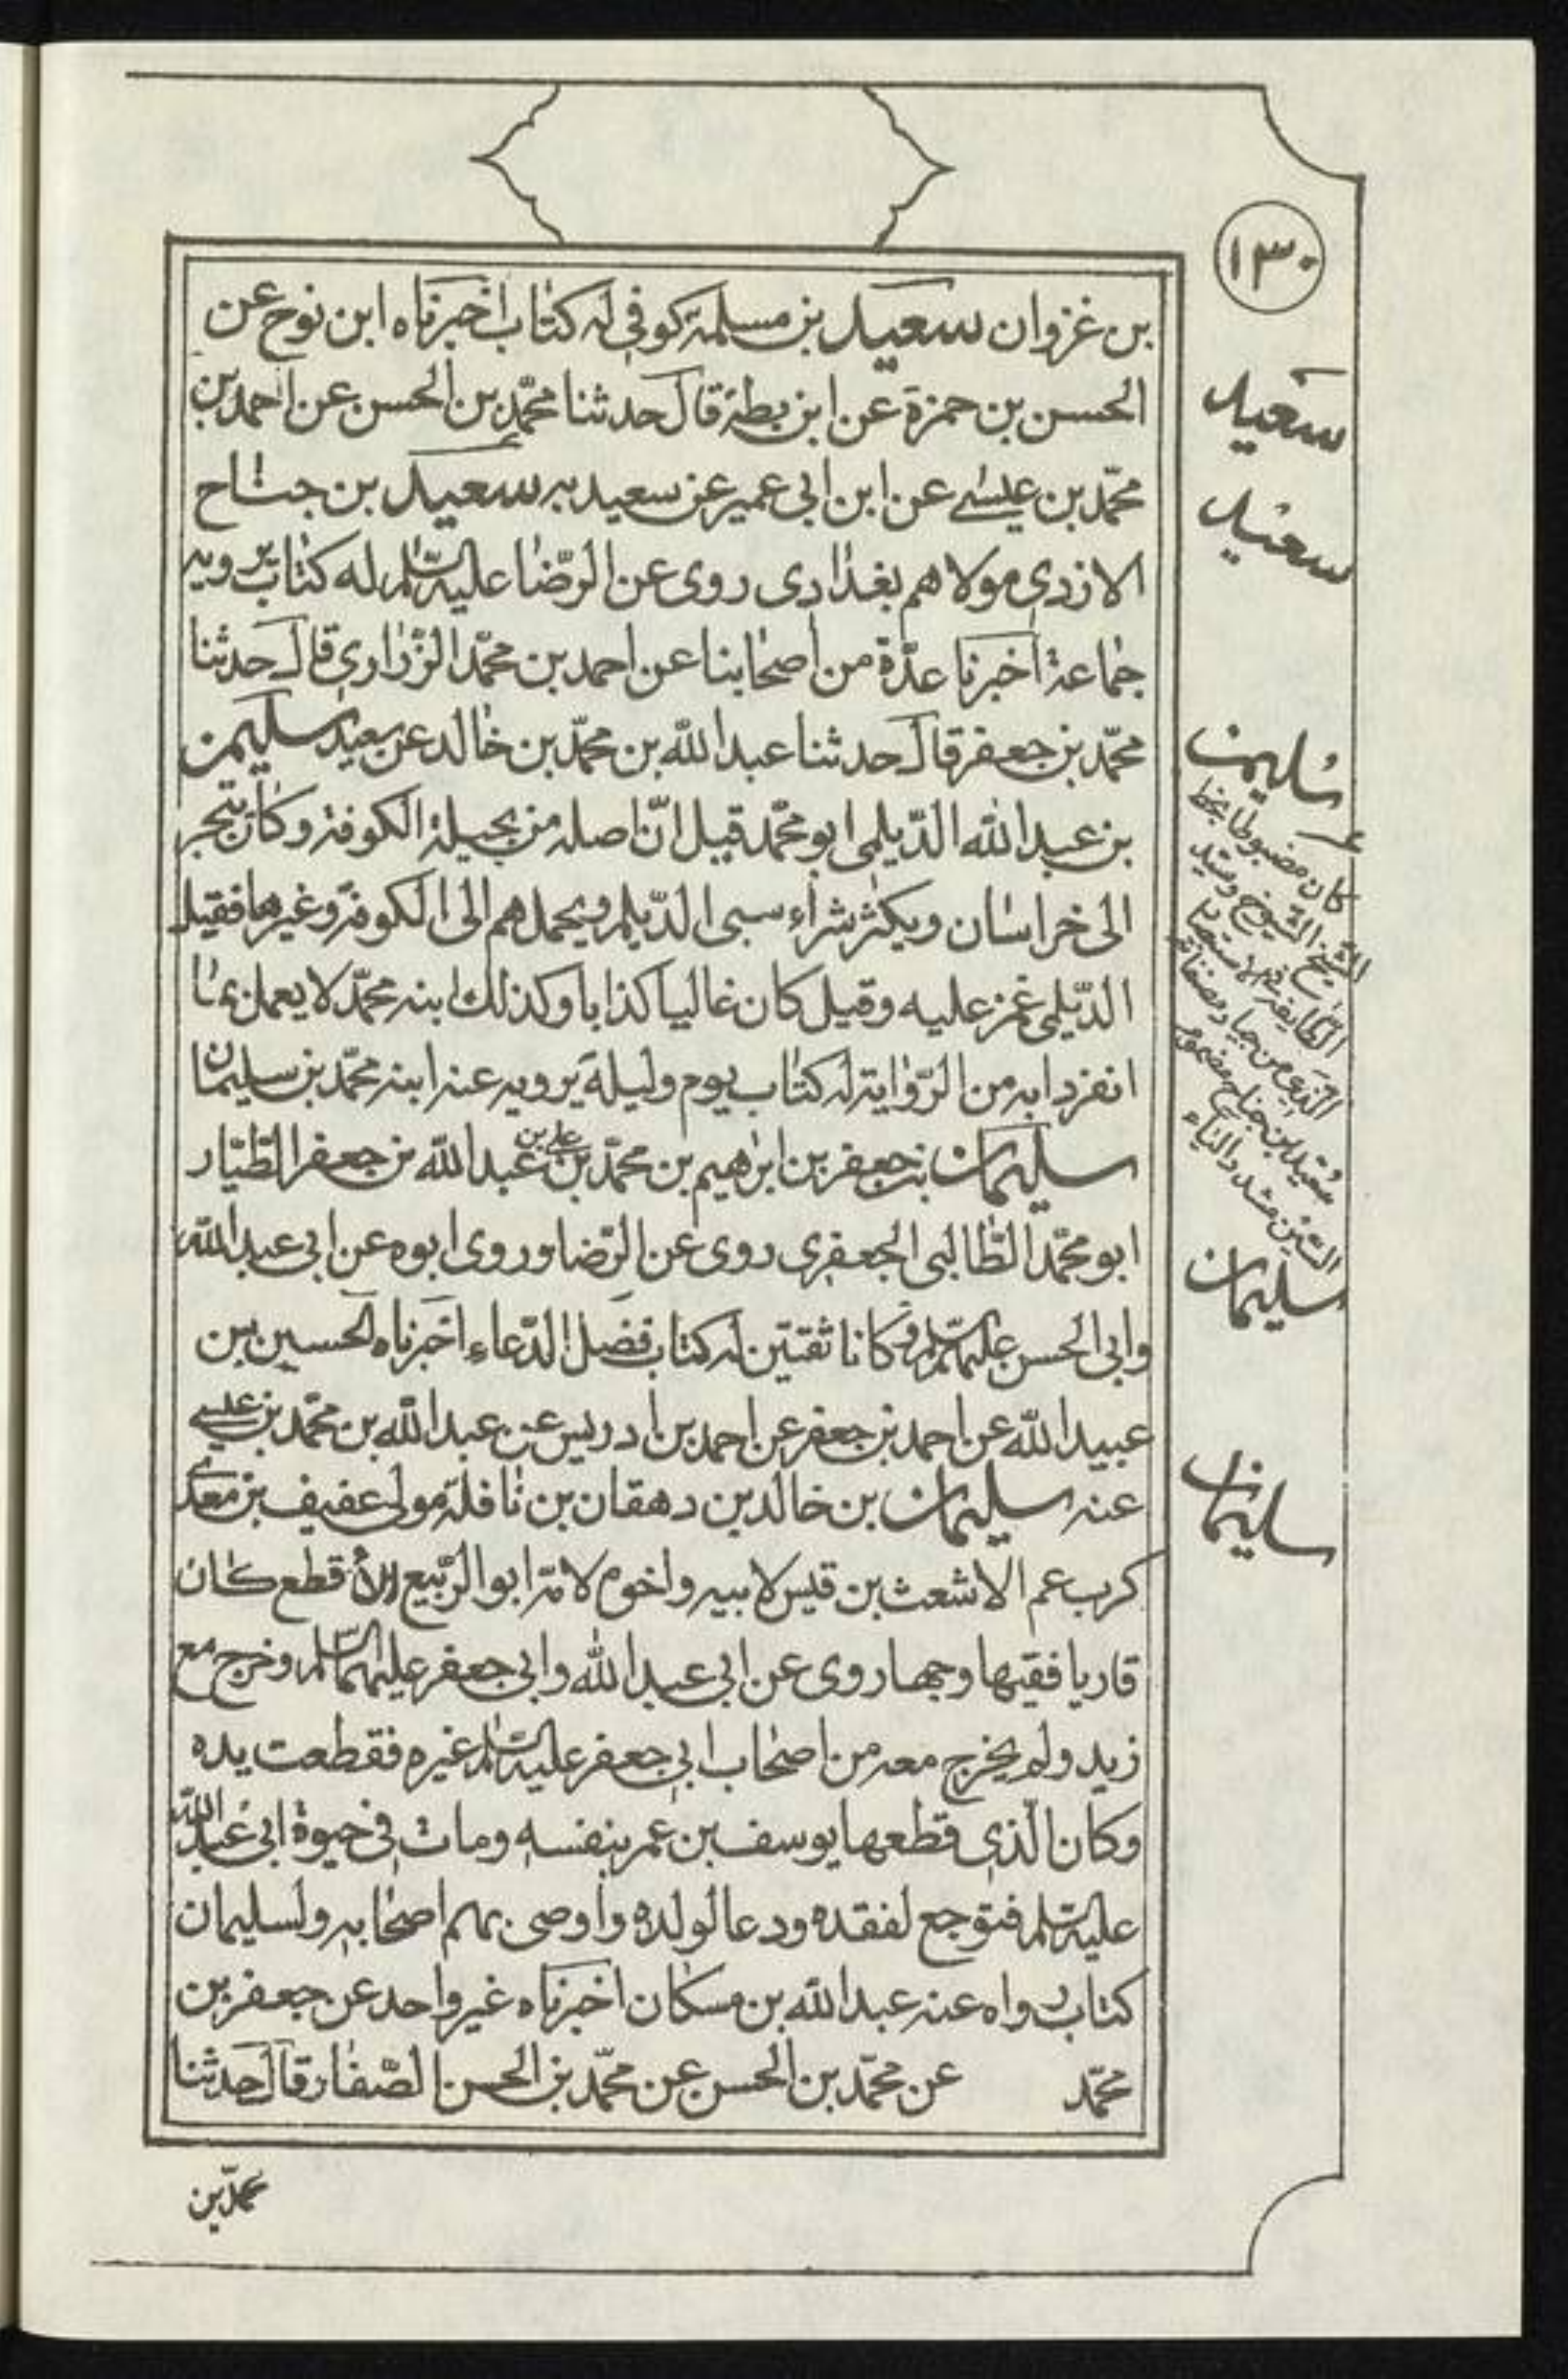 ١٣٠
بن غزوان سعيد بن مسلمة كوفى له كتاب اخبرناه ابن نوح عن
الحسن بن حمزة عن ابن بطة قال حدثنا محمّد بن الحسن عن احمد بن
محمّد بن عيسى عن ابن ابى عمير عن سعيد به سعيد بن جناح
الازدى مولاهم بغدادى روى عن الرّضا عليه السّلم له كتاب يرويه
جماعة اخبرنا عدّة من اصحابنا عن احمد بن محمّد الزّرارى قال حدثنا
محمّد بن جعفر قال حدثنا عبد الله بن محمّد بن خالد عن سعيد سليمن
بن عبد الله الدّيلمى ابو محمّد قيل انّ اصله من بجيلة الكوفة وكان يتجر
الى خراسان ويكثر شراء سبى الدّيلم ويحملهم الى الكوفة وغيرها فقيل
الدّيلمى غمز عليه وقيل كان غاليا كذابا وكذلك ابنه محمّد لا يعمل بما
انفردا به من الرّواية له كتاب يوم وليلة يرويه عنه ابنه محمّد بن سليمان
سليمان بن جعفر بن ابرهيم بن محمّد بن على بن عبد الله بن جعفر الطّيّار
ابو محمّد الطّالبى الجعفرى روى عن الرّضا وروى ابوه عن ابى عبد الله
وابى الحسن عليهما السّلم وكانا ثقتين له كتاب فضل الدّعاء اخبرناه الحسين بن
عبيد الله عن احمد بن جعفر عن احمد بن ادريس عن عبد الله بن محمّد بن عيسى
عنه سليمان بن خالد بن دهقان بن نافلة مولى عفيف بن معدى
كرب عم الاشعث بن قيس لابيه واخوه لامّه ابو الرّبيع الأقطع كان
قاريا فقيها وجها روى عن ابى عبد الله وابى جعفر عليهما السّلم وخرج مع
زيد ولم يخرج معه من اصحاب ابى جعفر عليه السّلم غيره فقطعت يده
وكان الّذى قطعها يوسف بن عمر بنفسه ومات فى حيوة ابى عبد الله
عليه السّلم فتوجع لفقده ودعا لولده واوصى بهم اصحابه ولسليمان
كتاب رواه عنه عبد الله بن مسكان اخبرناه غير واحد عن جعفر بن
محمّد عن محمّد بن الحسن عن محمّد بن الحسن الصّفار قال حدثنا
محمّد بن
سعيد
سعيد
سليمن
كان مضبوطا بخط
الشيخ الشيوخ وسيد
الطايفة
سعيد بن جناح مضموم
السّين مشدد الياء
سليمان
سليمان